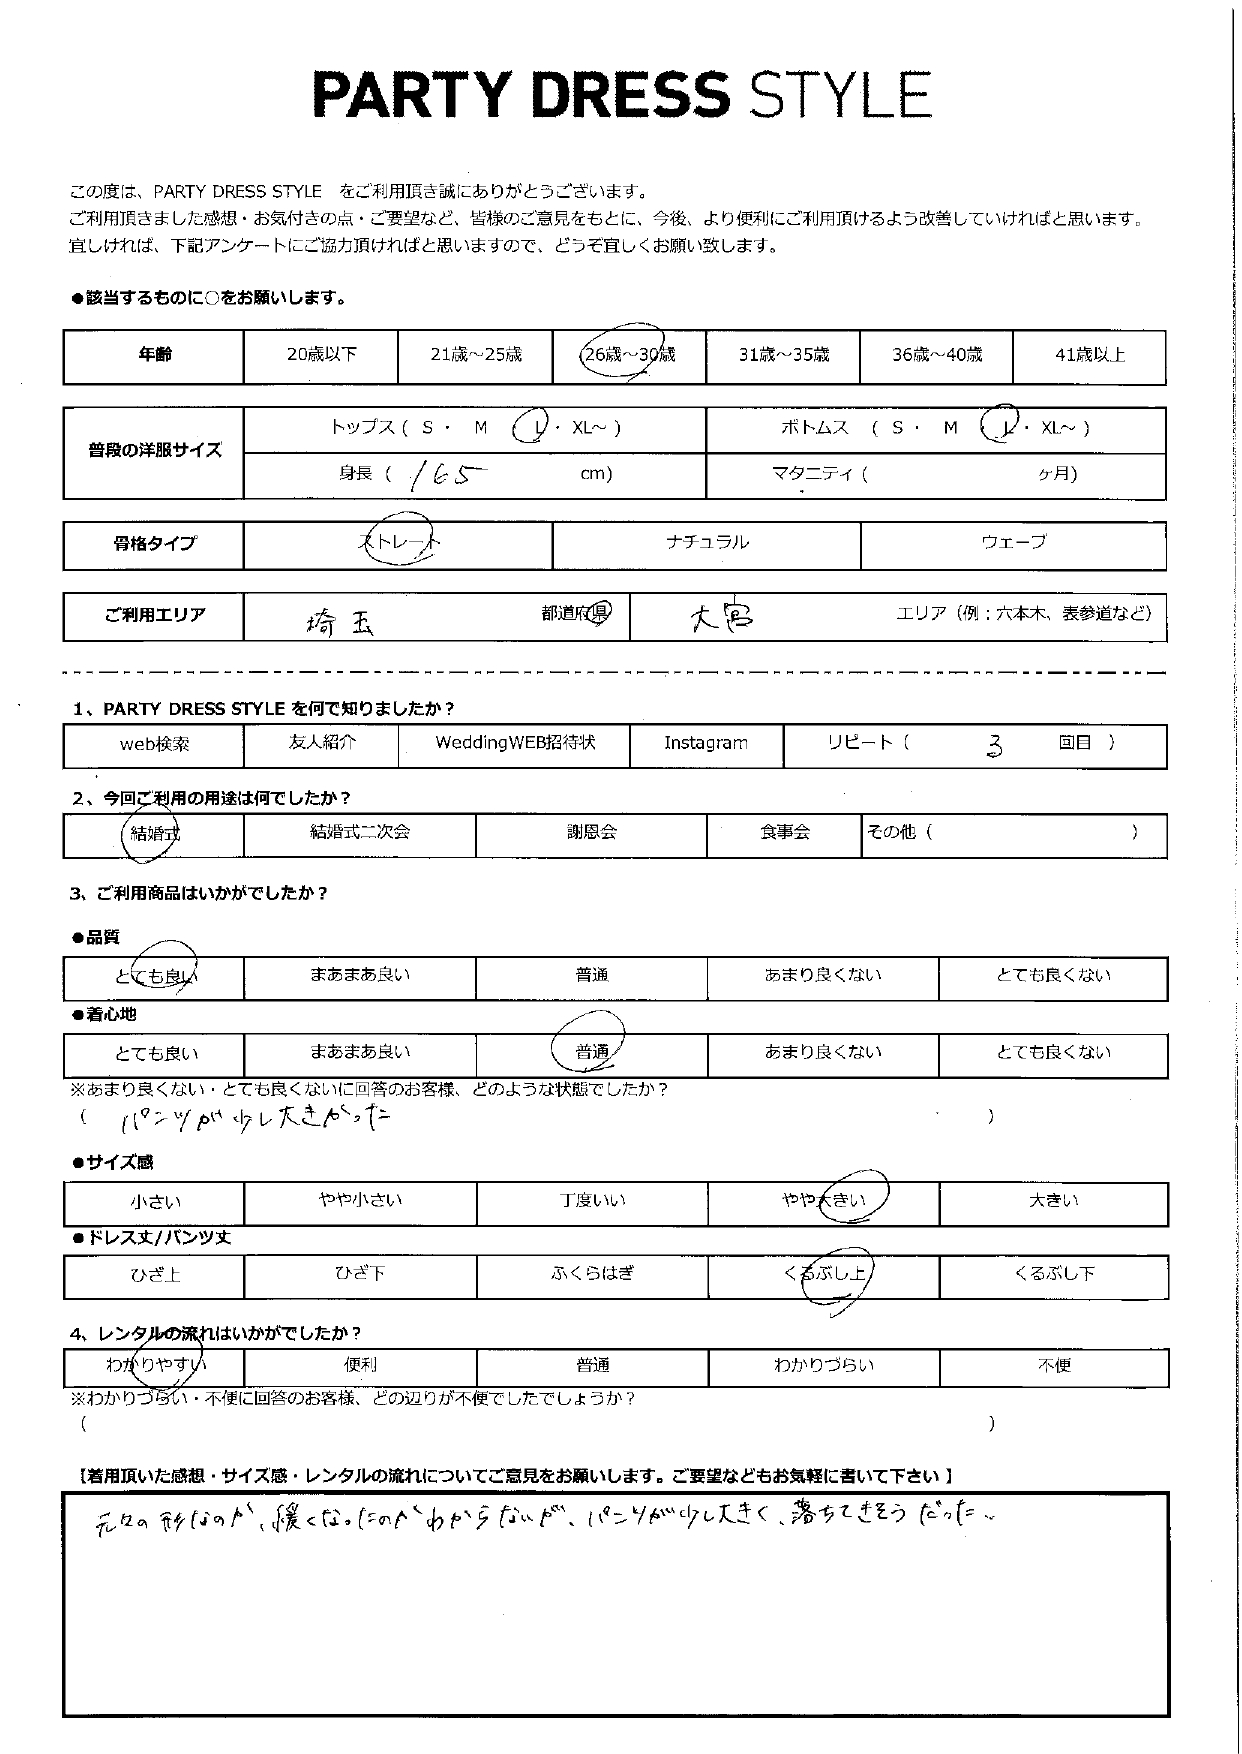 PARTY DRESS STYLE
この度は、PARTY DRESS STYLE をご利用頂き誠にありがとうございます。
ご利用頂きました感想・お気付きの点・ご要望など、皆様のご意見をもとに、今後、より便利にご利用頂けるよう改善していければと思います。
宜しければ、下記アンケートにご協力頂ければと思いますので、どうぞ宜しくお願い致します。
●該当するものに○をお願いします。
年齢 20歳以下 21歳～25歳 26歳～30歳 31歳～35歳 36歳～40歳 41歳以上
普段の洋服サイズ トップス ( S ・ M L ・ XL～ ) ボトムス ( S ・ M L ・ XL～ )
身長 ( 165 cm) マタニティ ( ヶ月)
骨格タイプ ストレート ナチュラル ウェーブ
ご利用エリア 埼玉 都道府県 大宮 エリア（例：六本木、表参道など）
1、PARTY DRESS STYLE を何で知りましたか？
web検索 友人紹介 WeddingWEB招待状 Instagram リピート ( 3 回目 )
2、今回ご利用の用途は何でしたか？
結婚式 結婚式二次会 謝恩会 食事会 その他 ( )
3、ご利用商品はいかがでしたか？
●品質
とても良い まあまあ良い 普通 あまり良くない とても良くない
●着心地
とても良い まあまあ良い 普通 あまり良くない とても良くない
※あまり良くない・とても良くないに回答のお客様、どのような状態でしたか？
( パンツが少し大きかった )
●サイズ感
小さい やや小さい 丁度いい やや大きい 大きい
●ドレス丈/パンツ丈
ひざ上 ひざ下 ふくらはぎ くるぶし上 くるぶし下
4、レンタルの流れはいかがでしたか？
わかりやすい 便利 普通 わかりづらい 不便
※わかりづらい・不便に回答のお客様、どの辺りが不便でしたでしょうか？
( )
【着用頂いた感想・サイズ感・レンタルの流れについてご意見をお願いします。ご要望などもお気軽に書いて下さい】
元々の形なのか、緩くなったのかわからないが、パンツが少し大きく、落ちてきそうだった。